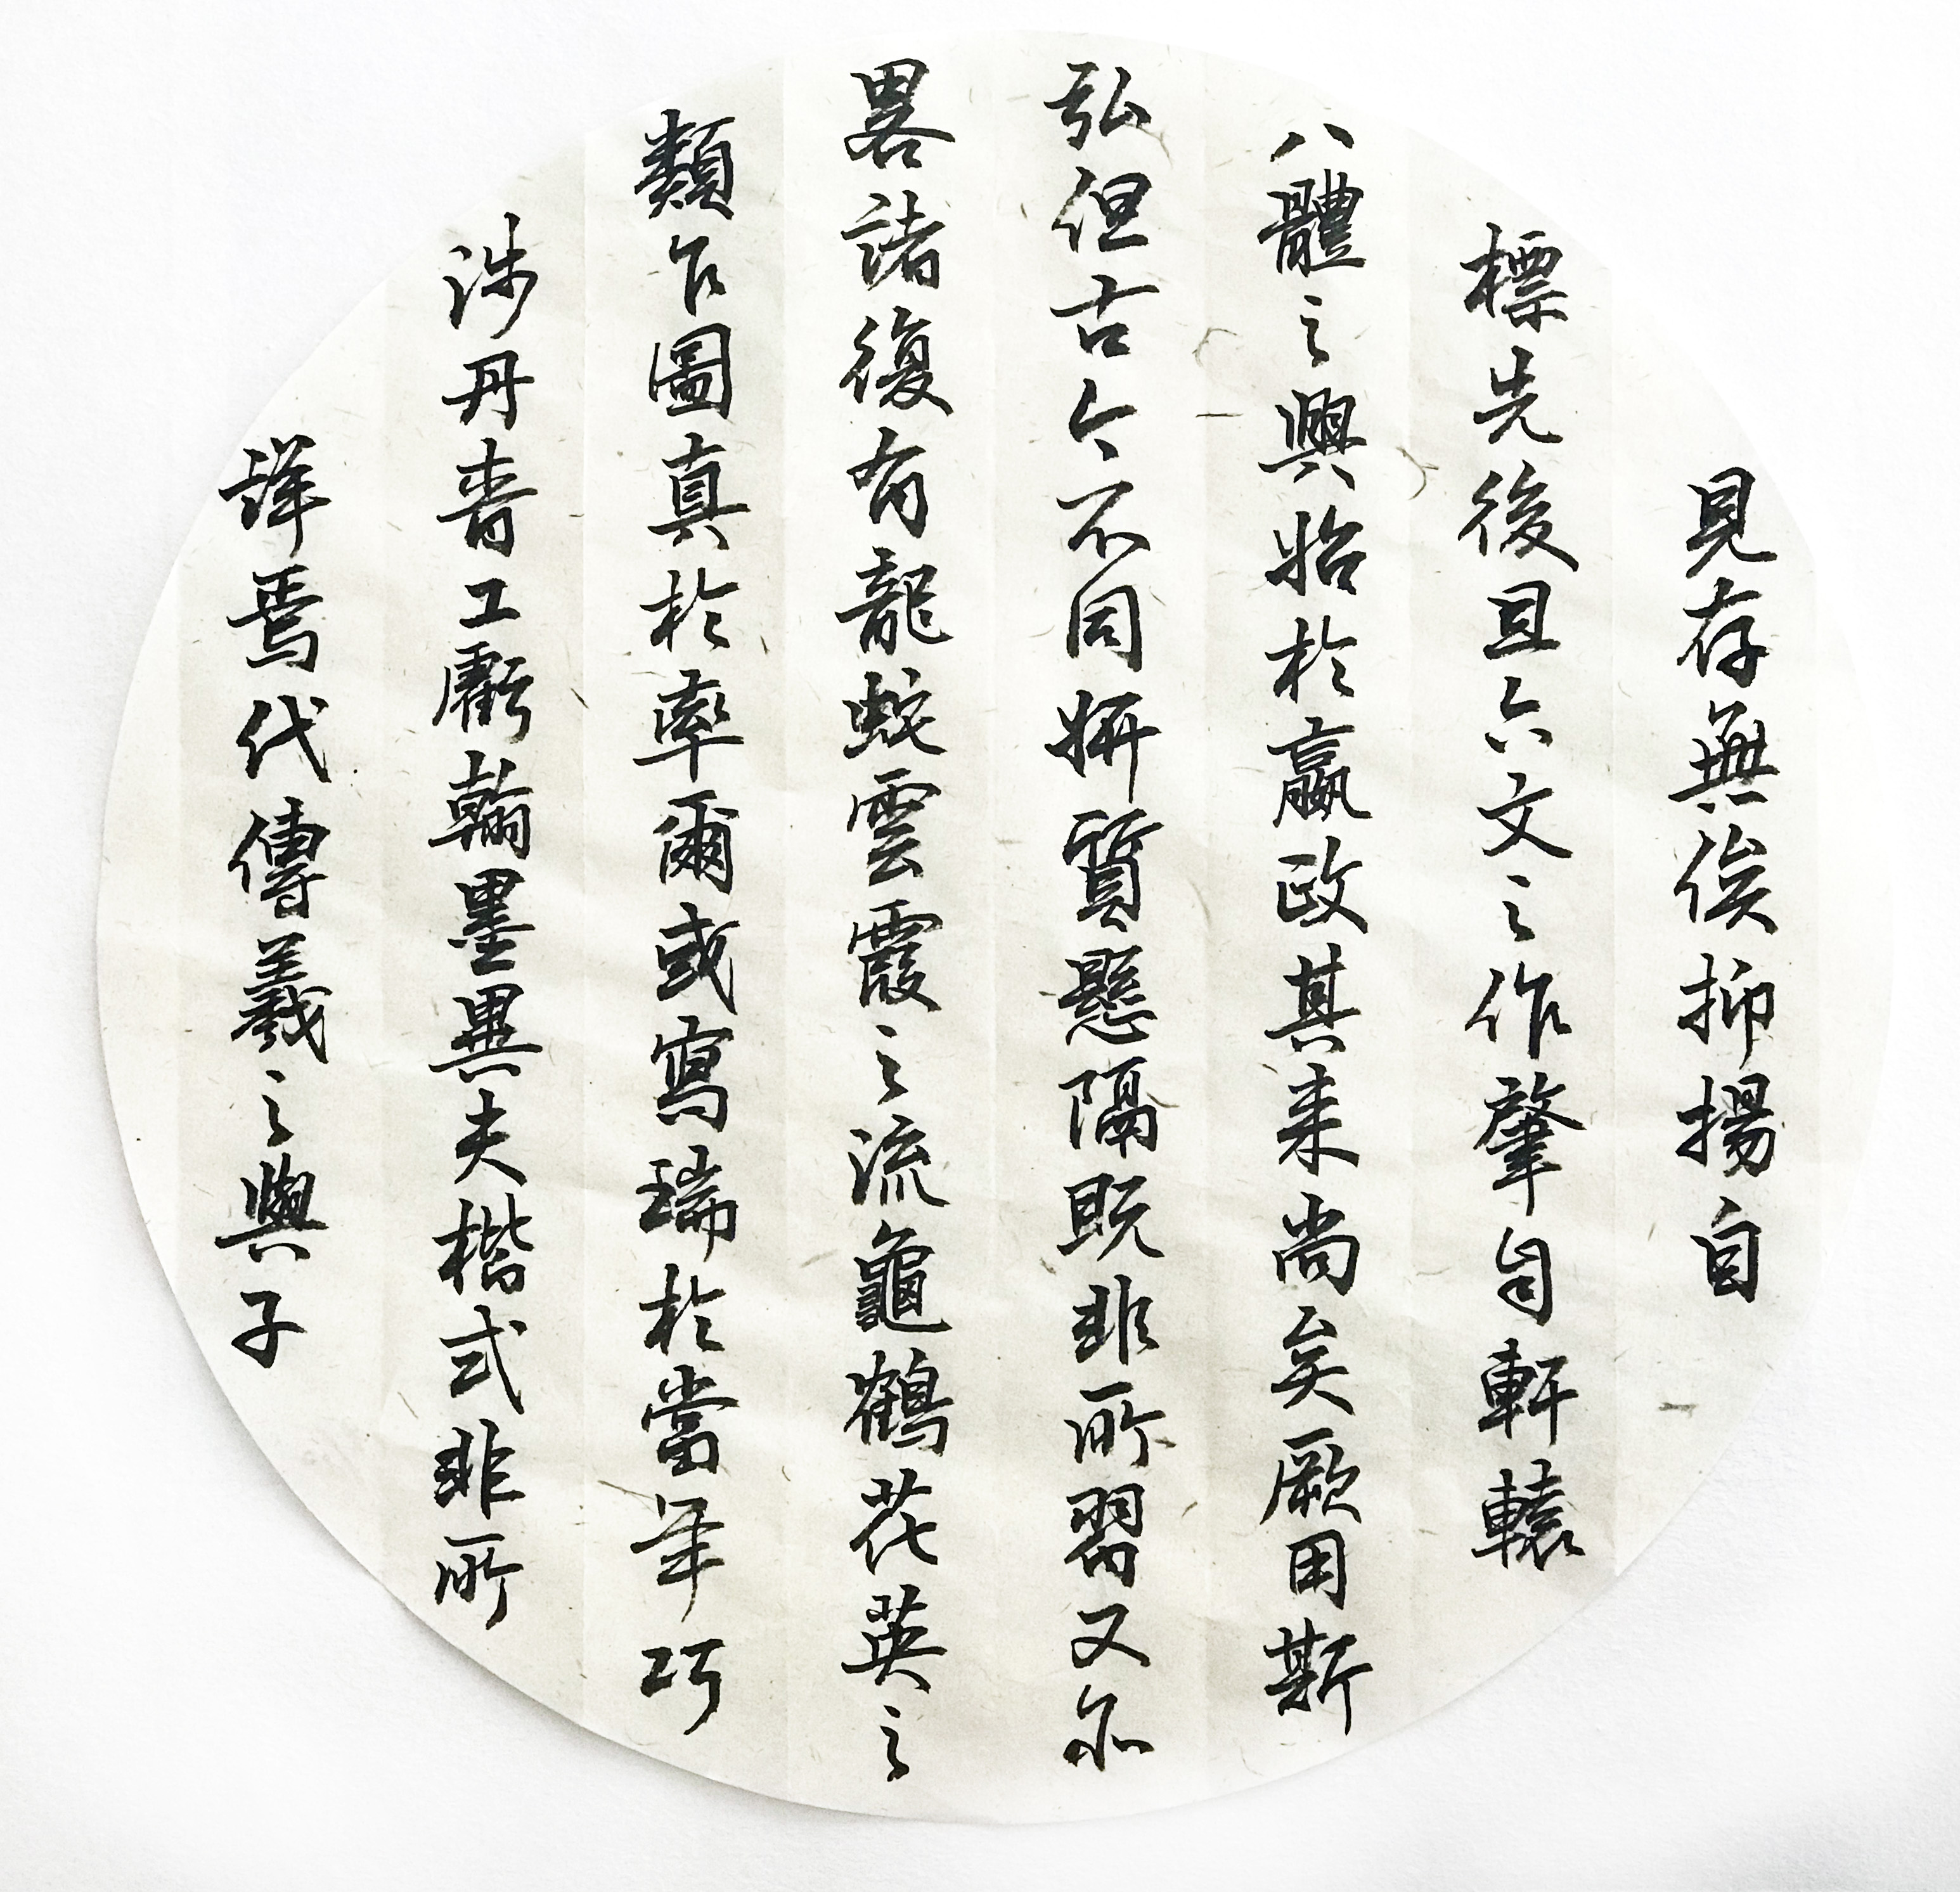 見存無俟抑揚自
標先後且六文之作肇自軒轅
八體之興始於嬴政其来尚矣厥用斯
弘但古今不同妍質懸隔既非所習又亦
畧諸復有龍蛇雲霞之流龜鶴花英之
類乍圖真於率爾或寫瑞於當年巧
涉丹青工虧翰墨異夫楷式非所
詳焉代傳羲之與子